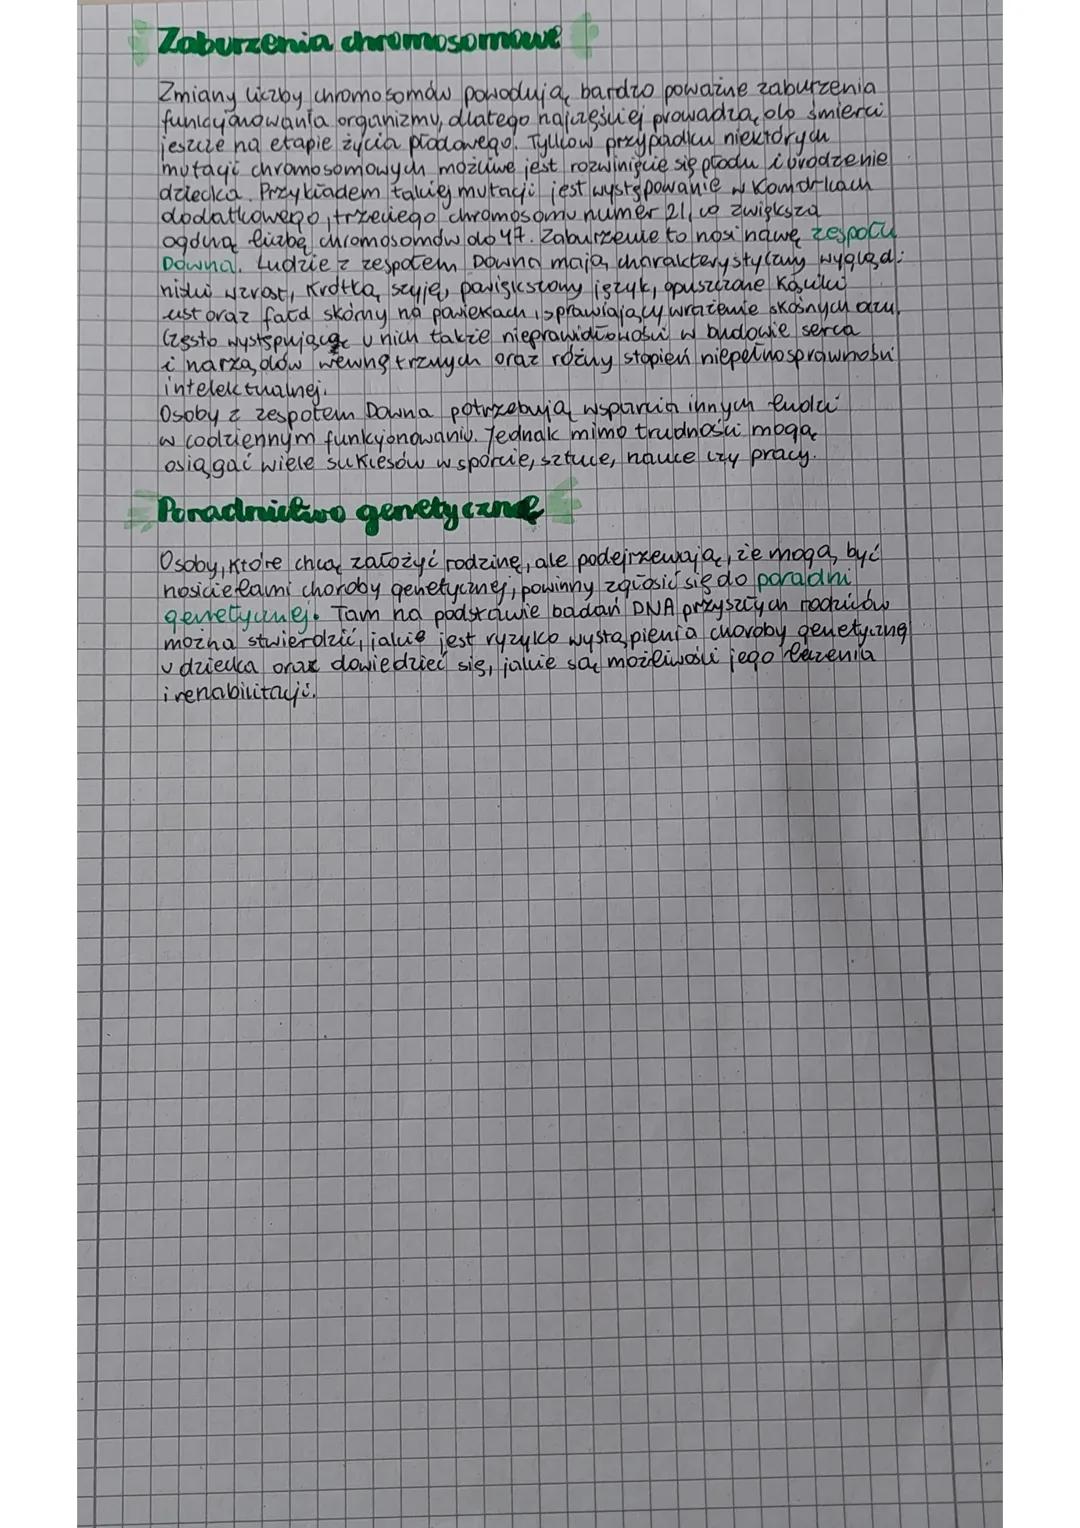 Zaburzenia chromosomowe
Zmiany liczby chromosomów powodują bardzo poważne zaburzenia
funkcjonowania organizmu, dlatego najczęściej prowadzą do śmierci
jeszcze na etapie życia płodowego. Tylko w przypadku niektórych
mutacji chromosomowych możliwe jest rozwinięcie się płodu i urodzenie
dziecka. Przykładem takiej mutacji jest występowanie w komórkach
dodatkowego, trzeciego chromosomu numer 21, co zwiększa
ogólną liczbę chromosomów do 47. Zaburzenie to nosi nawę zespołu
Downa. Ludzie z zespołem Downa mają charakterystyczny wygląd:
niski wzrost, krótką szyję, powiększony język, opuszczone kąciki
ust oraz fałd skórny na powiekach, sprawiający wrażenie skośnych oczu.
Często występujące u nich także nieprawidłowości w budowie serca
i narządów wewnętrznych oraz różny stopień niepełnosprawności
intelektualnej.
Osoby z zespołem Downa potrzebują wsparcia innych ludzi
w codziennym funkcjonowaniu. Jednak mimo trudności mogą
osiągać wiele sukcesów w sporcie, sztuce, nauce czy pracy.
Poradnictwo genetyczne
Osoby, które chcą założyć rodzinę, ale podejrzewają, że mogą być
nosicielami choroby genetycznej, powinny zgłosić się do poradni
genetycznej. Tam na podstawie badań DNA przyszłych rodziców
można stwierdzić, jakie jest ryzyko wystąpienia choroby genetycznej
u dziecka oraz dowiedzieć się, jakie są możliwości jego leczenia
i rehabilitacji.